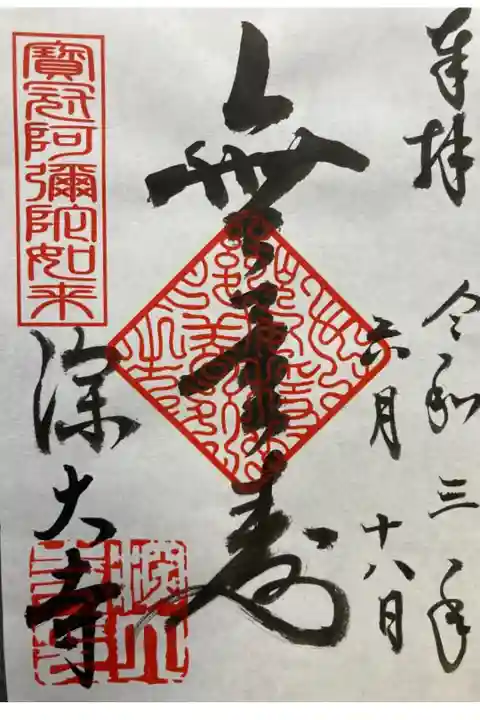 奉拝
令和三年
六月十八日
無量壽
寶冠阿彌陀如来
深大寺